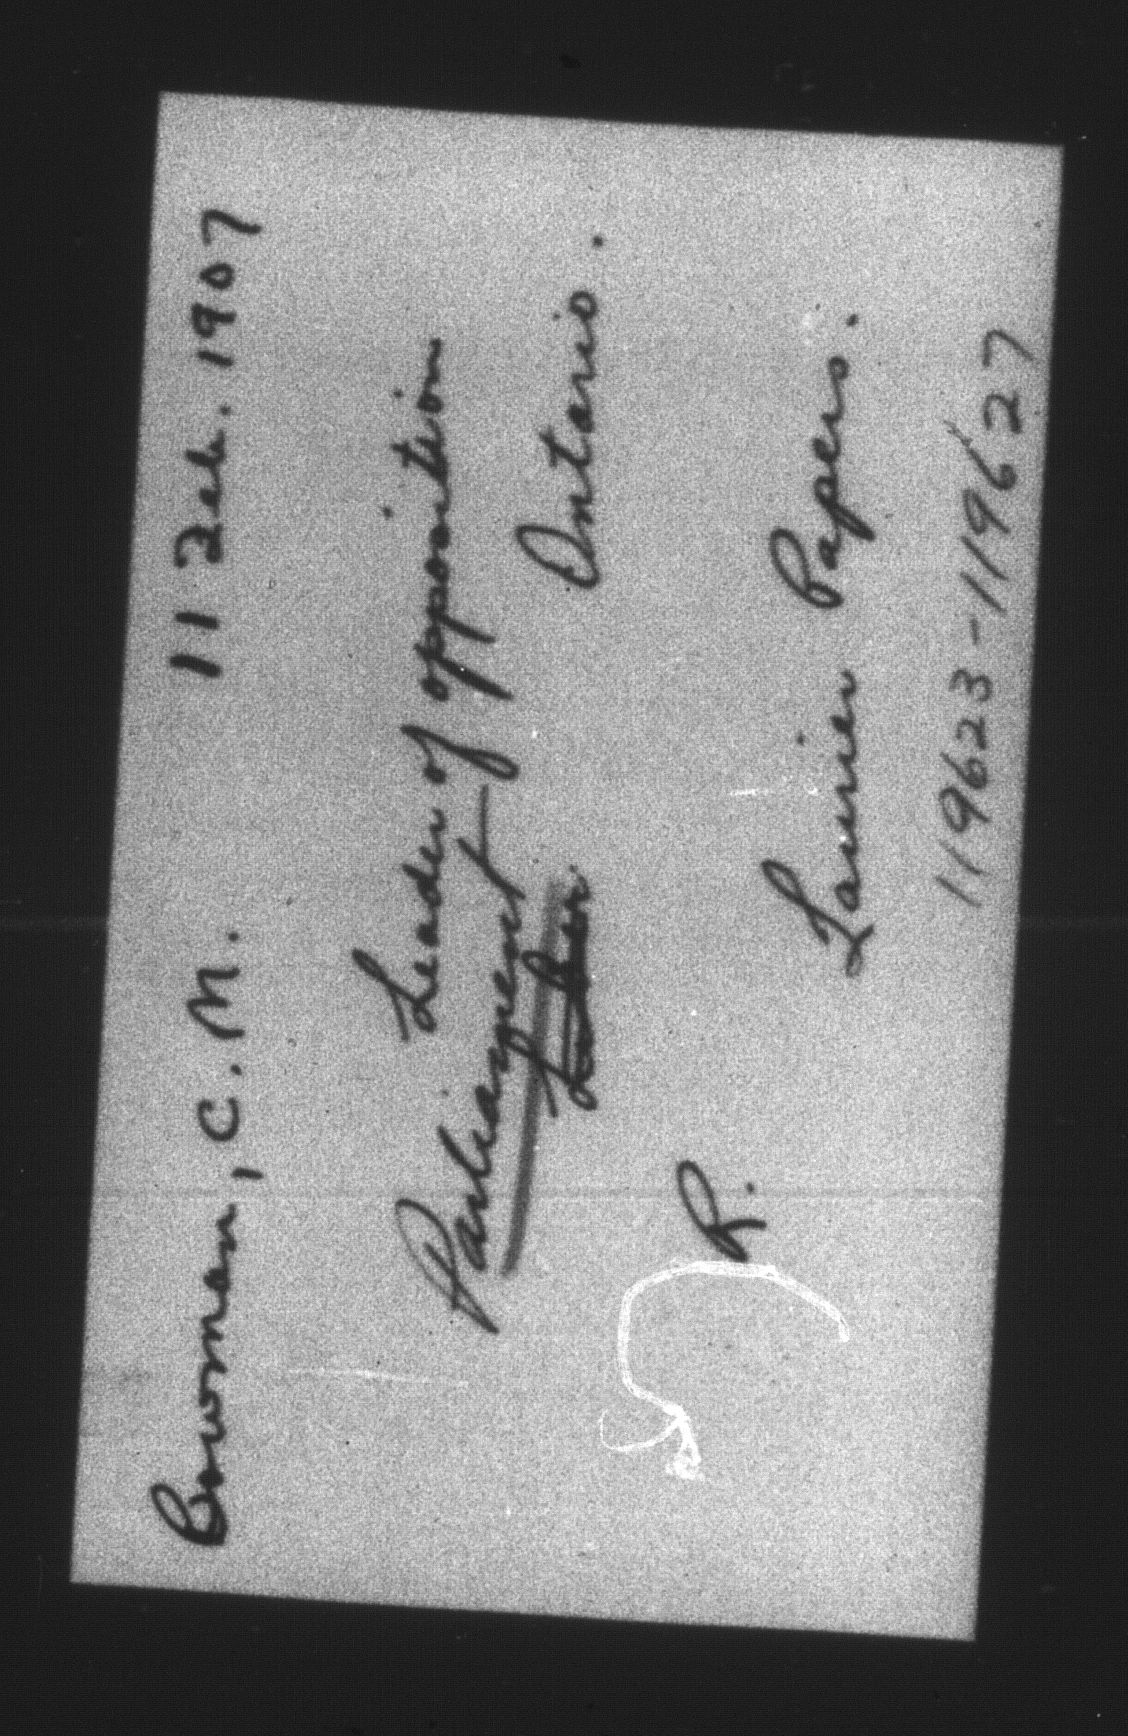 Bowman, C. M. 11 Feb. 1907
Leader of opposition
Parliament Ontario.
R. Laurier Papers.
119623-119627